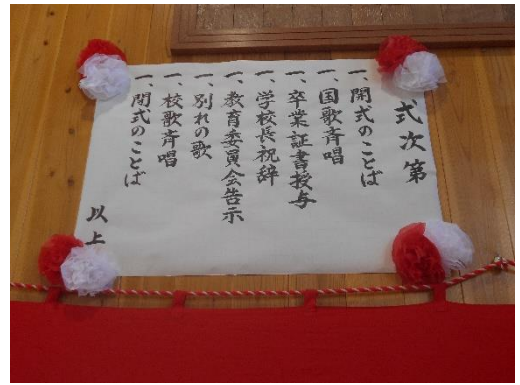 式次第
一、開式のことば
一、国歌斉唱
一、卒業証書授与
一、学校長祝辞
一、教育委員会告示
一、別れの歌
一、校歌斉唱
一、閉式のことば
以上